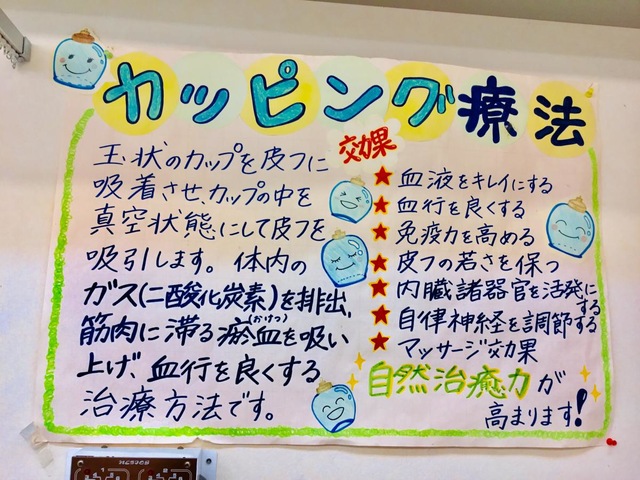 カッピング療法
玉状のカップを皮フに
吸着させ、カップの中を
真空状態にして皮フを
吸引します。体内の
ガス(二酸化炭素)を排出、
筋肉に滞る瘀血(おけつ)を吸い
上げ、血行を良くする
治療方法です。
交効果
★血液をキレイにする
★血行を良くする
★免疫力を高める
★皮フの若さを保つ
★内臓諸器官を活発にする
★自律神経を調節する
★マッサージ効果
自然治癒力が
高まります!